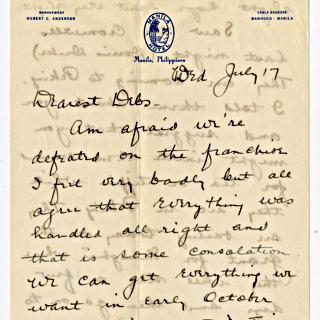 MANAGEMENT
HUBERT C. ANDERSON
MANILA
HOTEL
Manila, Philippines
CABLE ADDRESS
MANHOCO - MANILA
Wed July 17
Dearest Debs -
Am afraid we're
defeated on the franchise
I feel very badly but all
agree that everything was
handled all right and
that is some consolation
We can get everything we
want in early October